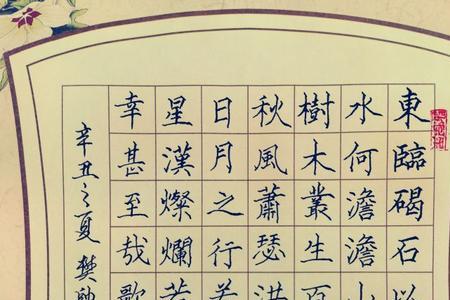 東臨碣石以
水何澹澹山
樹木叢生百
秋風蕭瑟洪
日月之行若
星漢燦爛若
幸甚至哉歌
辛丑之夏 樊